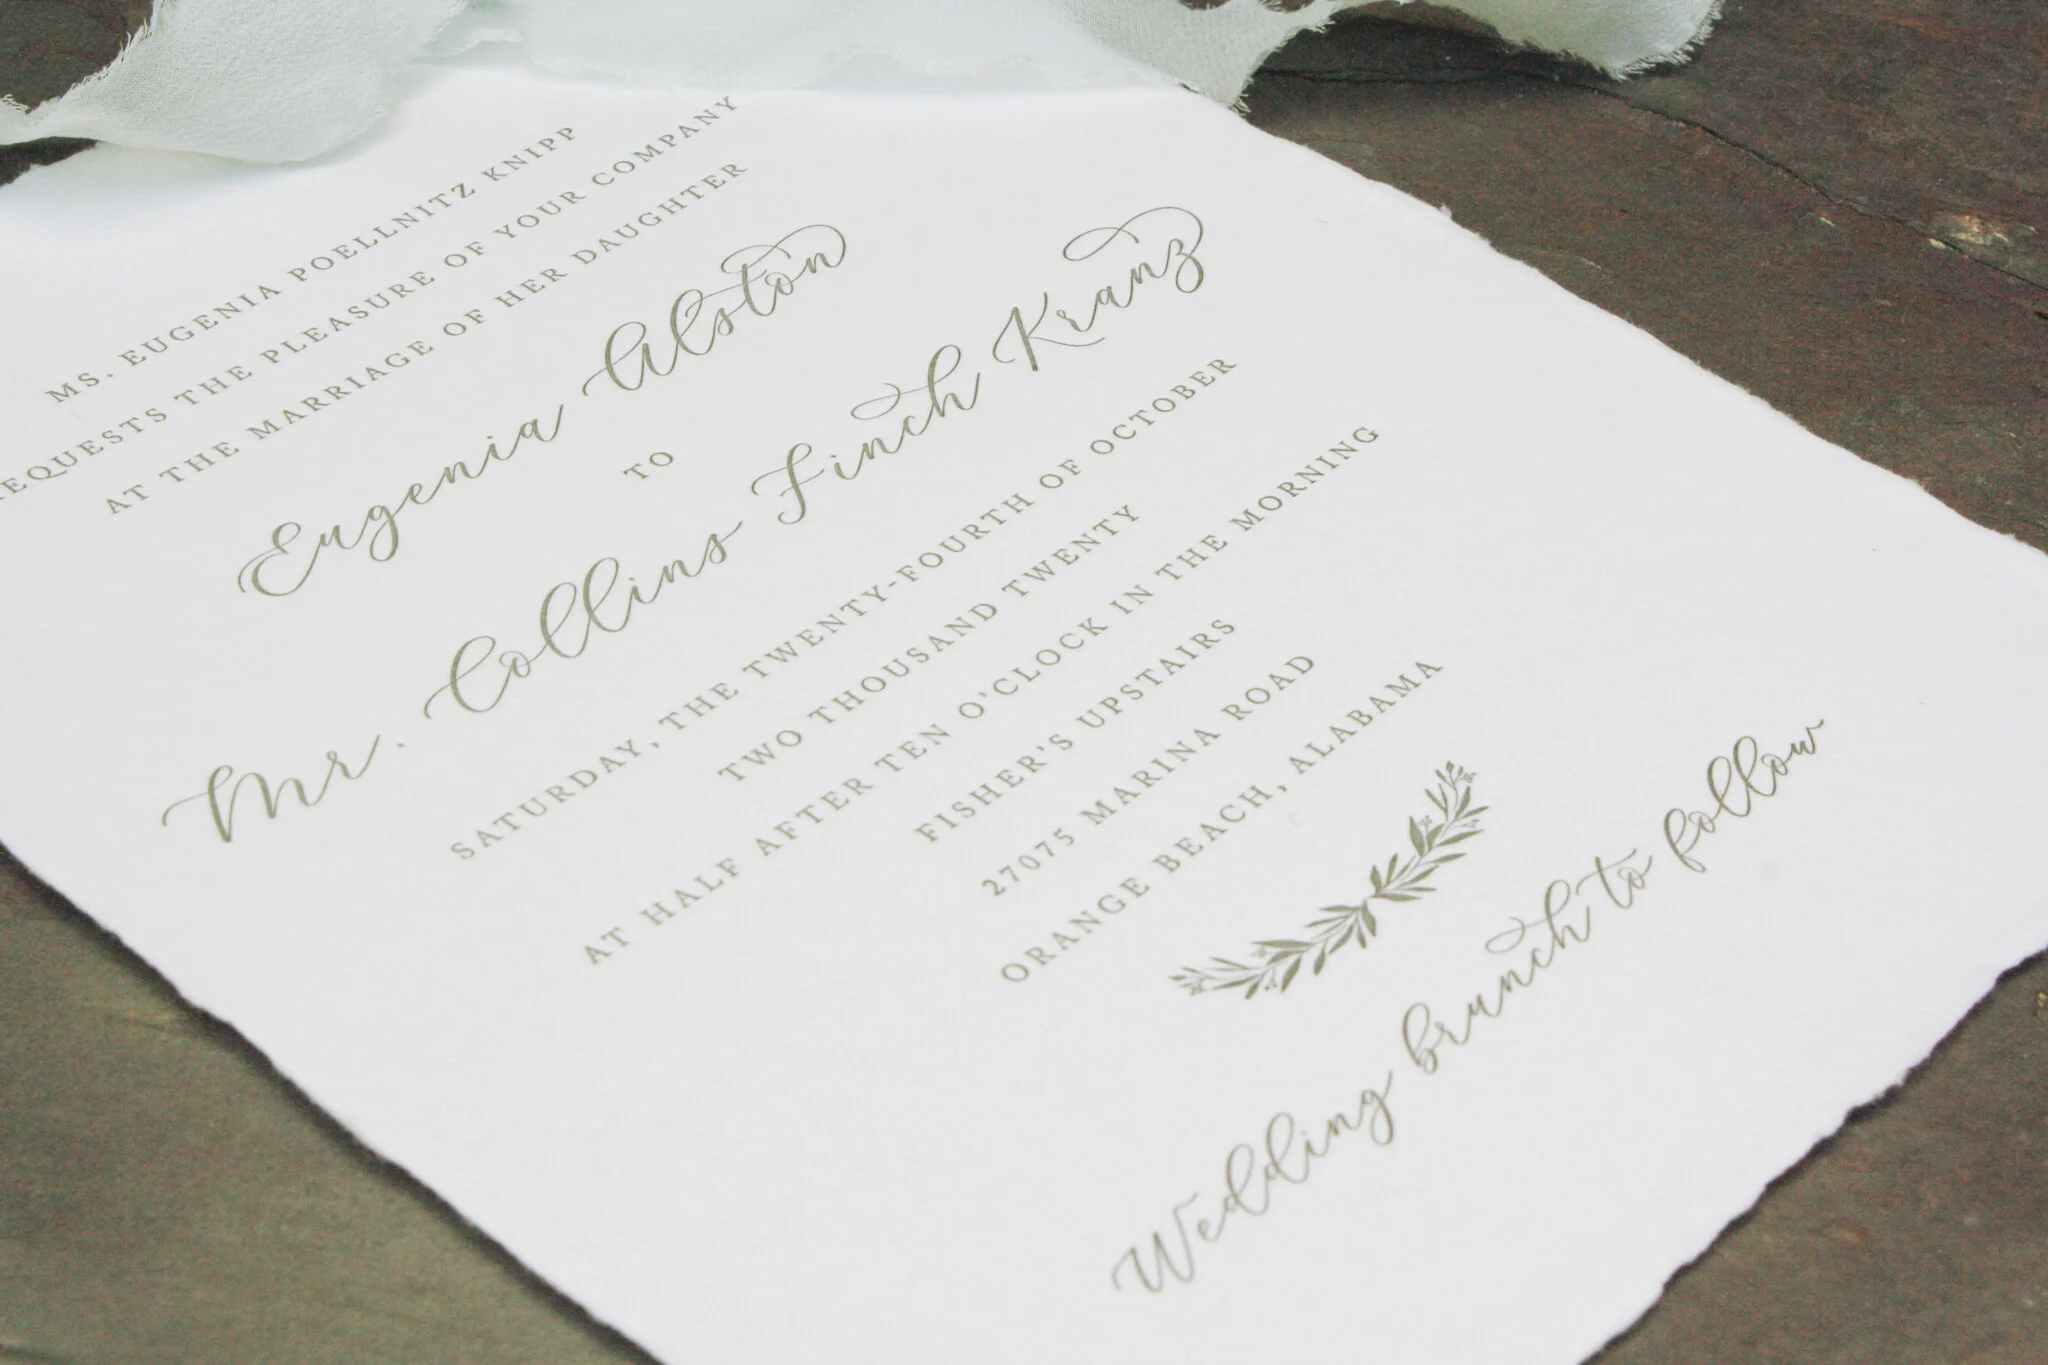 MS. EUGENIA POELLNITZ KNIPP
REQUESTS THE PLEASURE OF YOUR COMPANY
AT THE MARRIAGE OF HER DAUGHTER
Eugenia Alston
TO
Mr. Collins Finch Kranz
SATURDAY, THE TWENTY-FOURTH OF OCTOBER
TWO THOUSAND TWENTY
AT HALF AFTER TEN O'CLOCK IN THE MORNING
FISHER'S UPSTAIRS
27075 MARINA ROAD
ORANGE BEACH, ALABAMA
Wedding brunch to follow